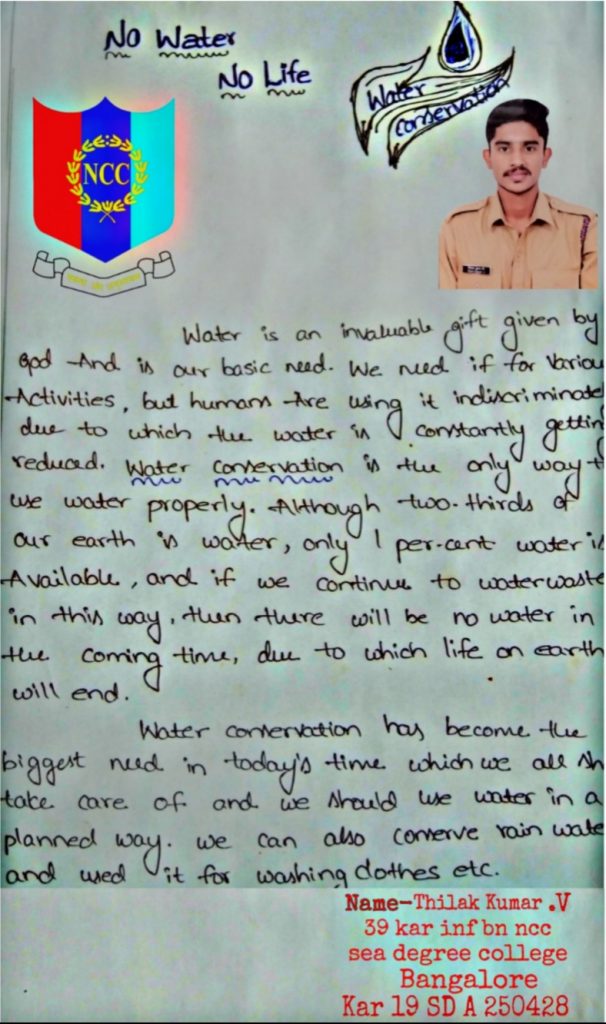 No Water
No Life
Water
conservation
NCC
Water is an invaluable gift given by
god And is our basic need. We need if for Variou
Activities, but humans Are using it indiscriminate
due to which the water is constantly gettin
reduced. Water conservation is the only way t
use water properly. Although two-thirds of
our earth is water, only 1 per-cent water is
Available, and if we continue to waterwaste
in this way, then there will be no water in
the coming time, due to which life on earth
will end.
Water conservation has become the
biggest need in today's time which we all sh
take care of and we should use water in a
planned way. we can also conserve rain wate
and used it for washing clothes etc.
Name-Thilak Kumar .V
39 kar inf bn ncc
sea degree college
Bangalore
Kar 19 SD A 250428